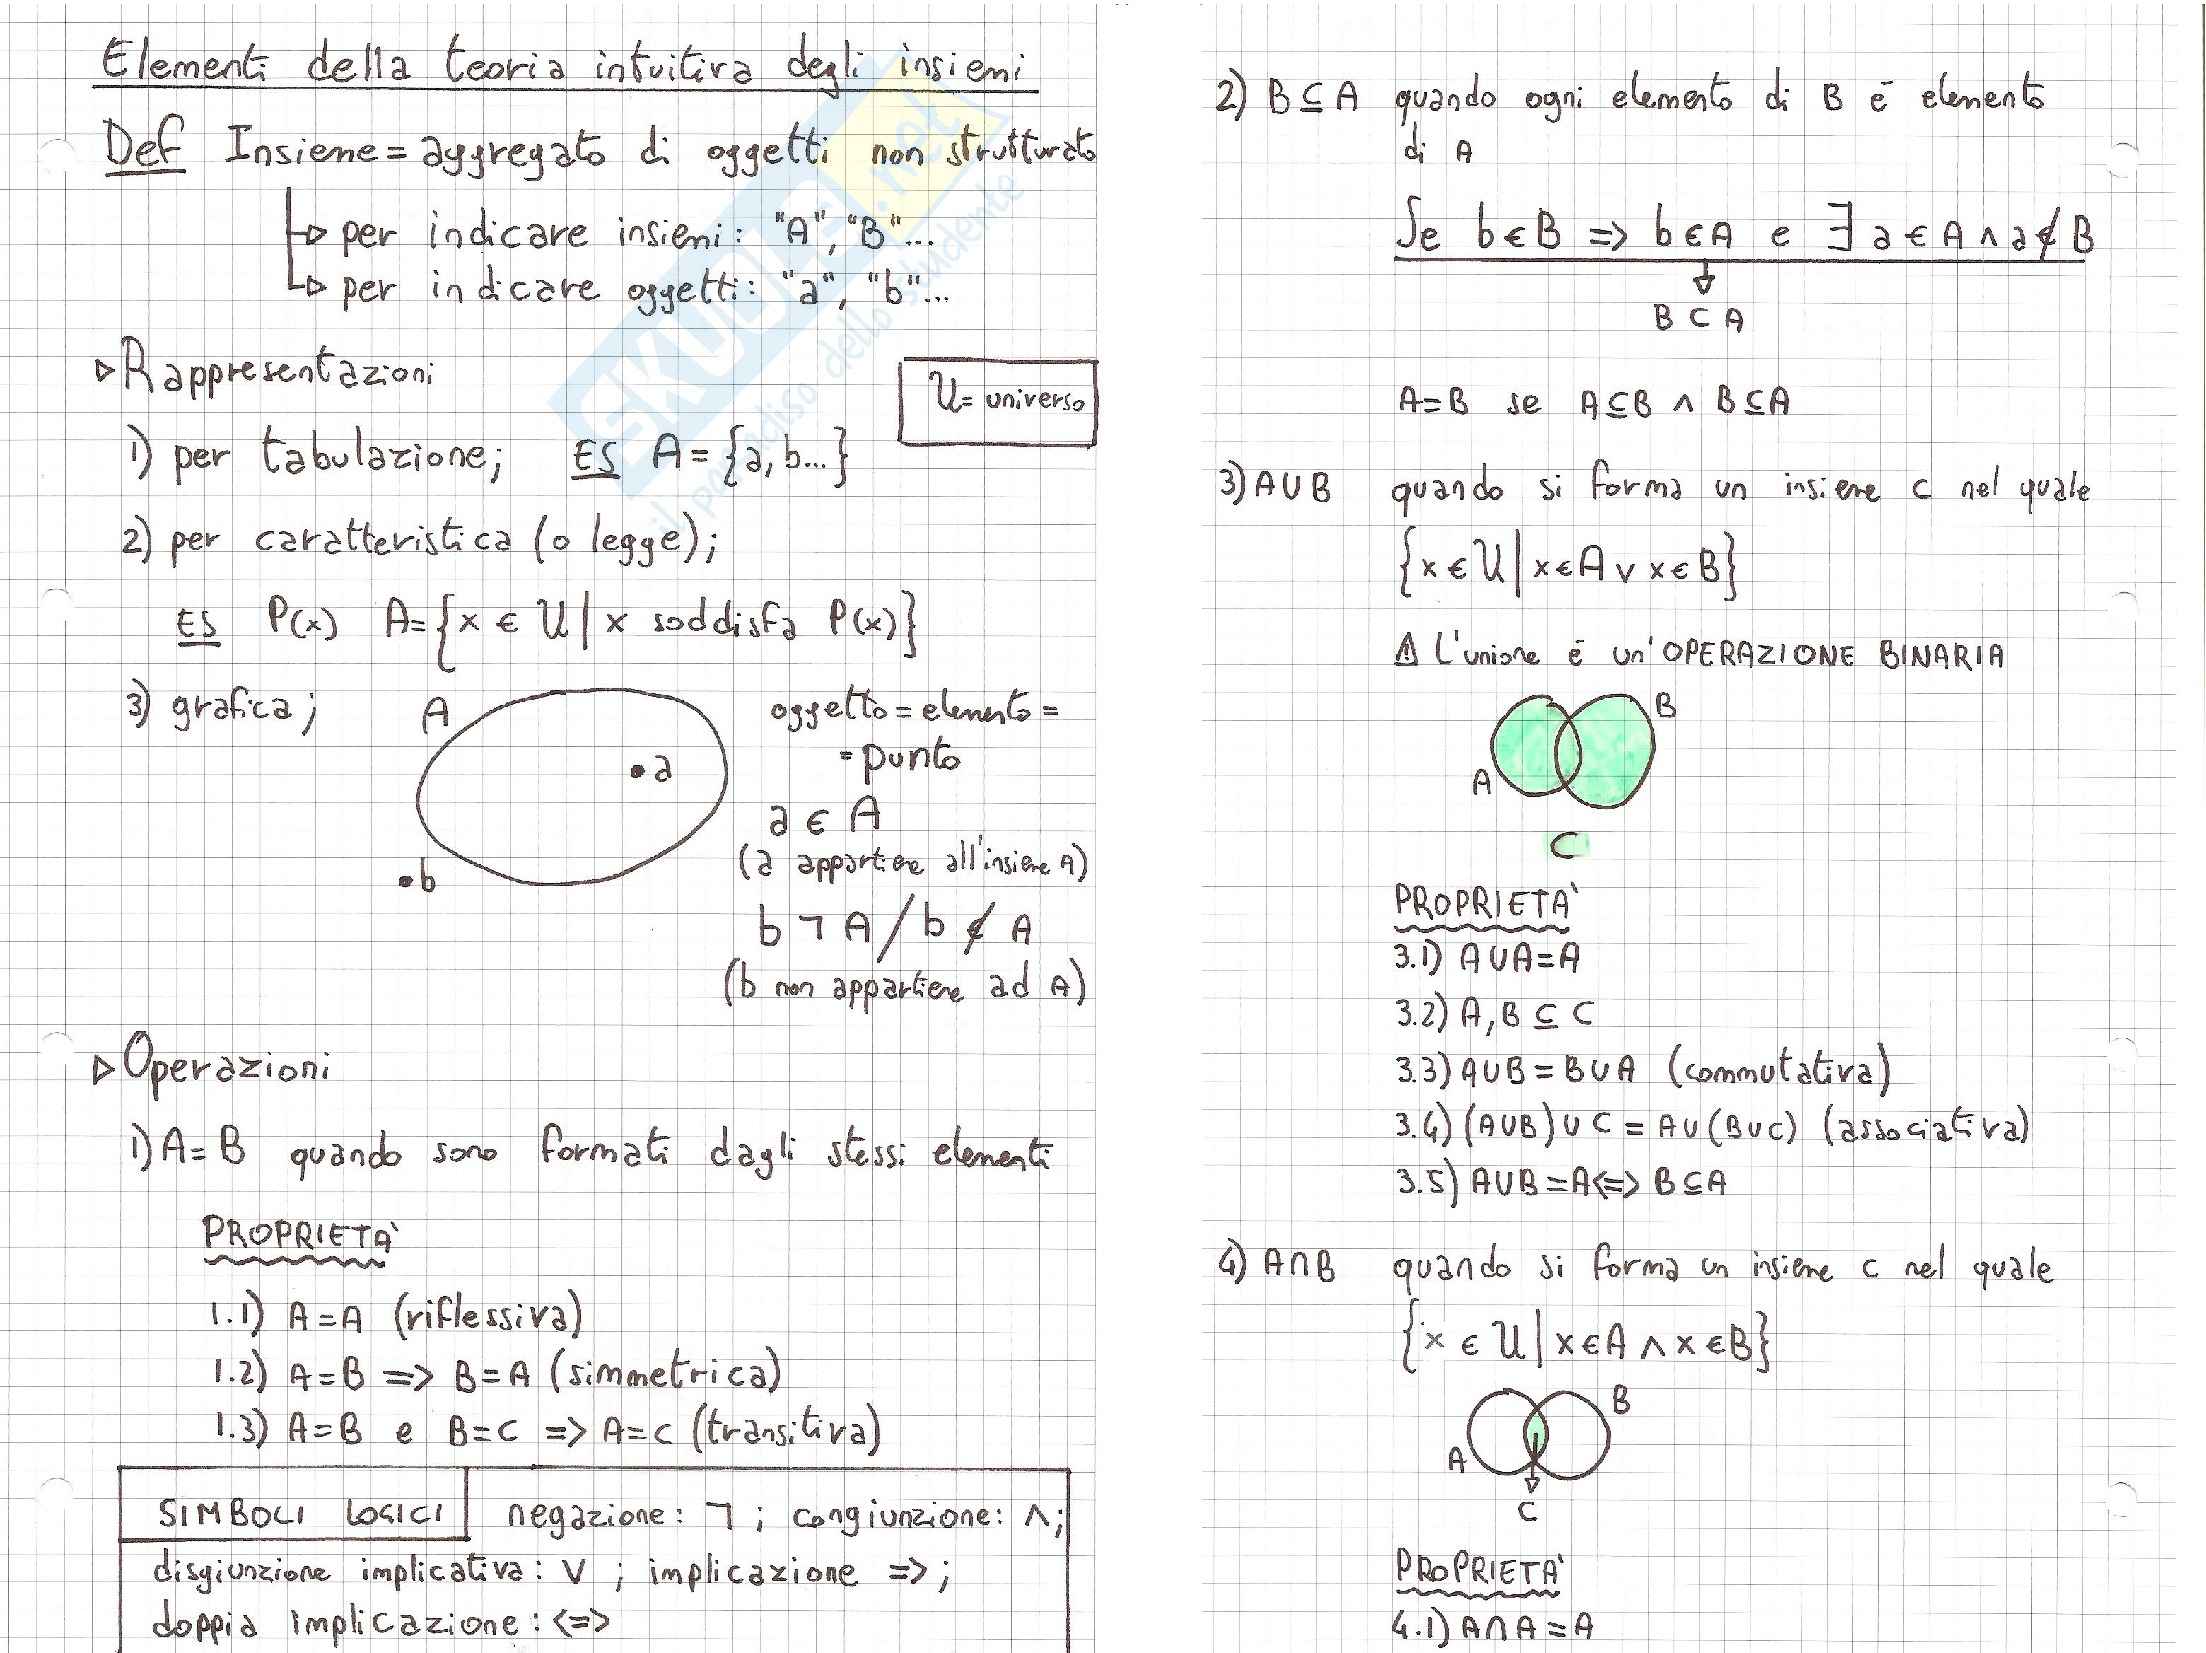 Elementi della teoria intuitiva degli insiemi
Def Insieme = aggregato di oggetti non strutturato
per indicare insiemi: "A", "B"...
per indicare oggetti: "a", "b"...
▷ Rappresentazioni
U = universo
1) per tabulazione; ES A = {a, b...}
2) per caratteristica (o legge);
ES P(x) A = {x ∈ U | x soddisfa P(x)}
3) grafica;
A
a
b
oggetto = elemento =
= punto
a ∈ A
(a appartiene all'insieme A)
b ¬ A / b ∉ A
(b non appartiene ad A)
▷ Operazioni
1) A = B quando sono formati dagli stessi elementi
PROPRIETA'
1.1) A = A (riflessiva)
1.2) A = B => B = A (simmetrica)
1.3) A = B e B = C => A = C (transitiva)
SIMBOLI LOGICI negazione: ¬ ; congiunzione: ∧;
disgiunzione implicativa: ∨ ; implicazione =>;
doppia implicazione: <=>
2) B ⊆ A quando ogni elemento di B é elemento
di A
Se b ∈ B => b ∈ A e ∃ a ∈ A ∧ a ∉ B
B ⊂ A
A = B se A ⊆ B ∧ B ⊆ A
3) A ∪ B quando si forma un insieme C nel quale
{x ∈ U | x ∈ A ∨ x ∈ B}
⚠ L'unione é un'OPERAZIONE BINARIA
B
A
C
PROPRIETA'
3.1) A ∪ A = A
3.2) A, B ⊆ C
3.3) A ∪ B = B ∪ A (commutativa)
3.4) (A ∪ B) ∪ C = A ∪ (B ∪ C) (associativa)
3.5) A ∪ B = A <=> B ⊆ A
4) A ∩ B quando si forma un insieme C nel quale
{x ∈ U | x ∈ A ∧ x ∈ B}
B
A
C
PROPRIETA'
4.1) A ∩ A = A
SKUOLA.net
il paradiso dello studente